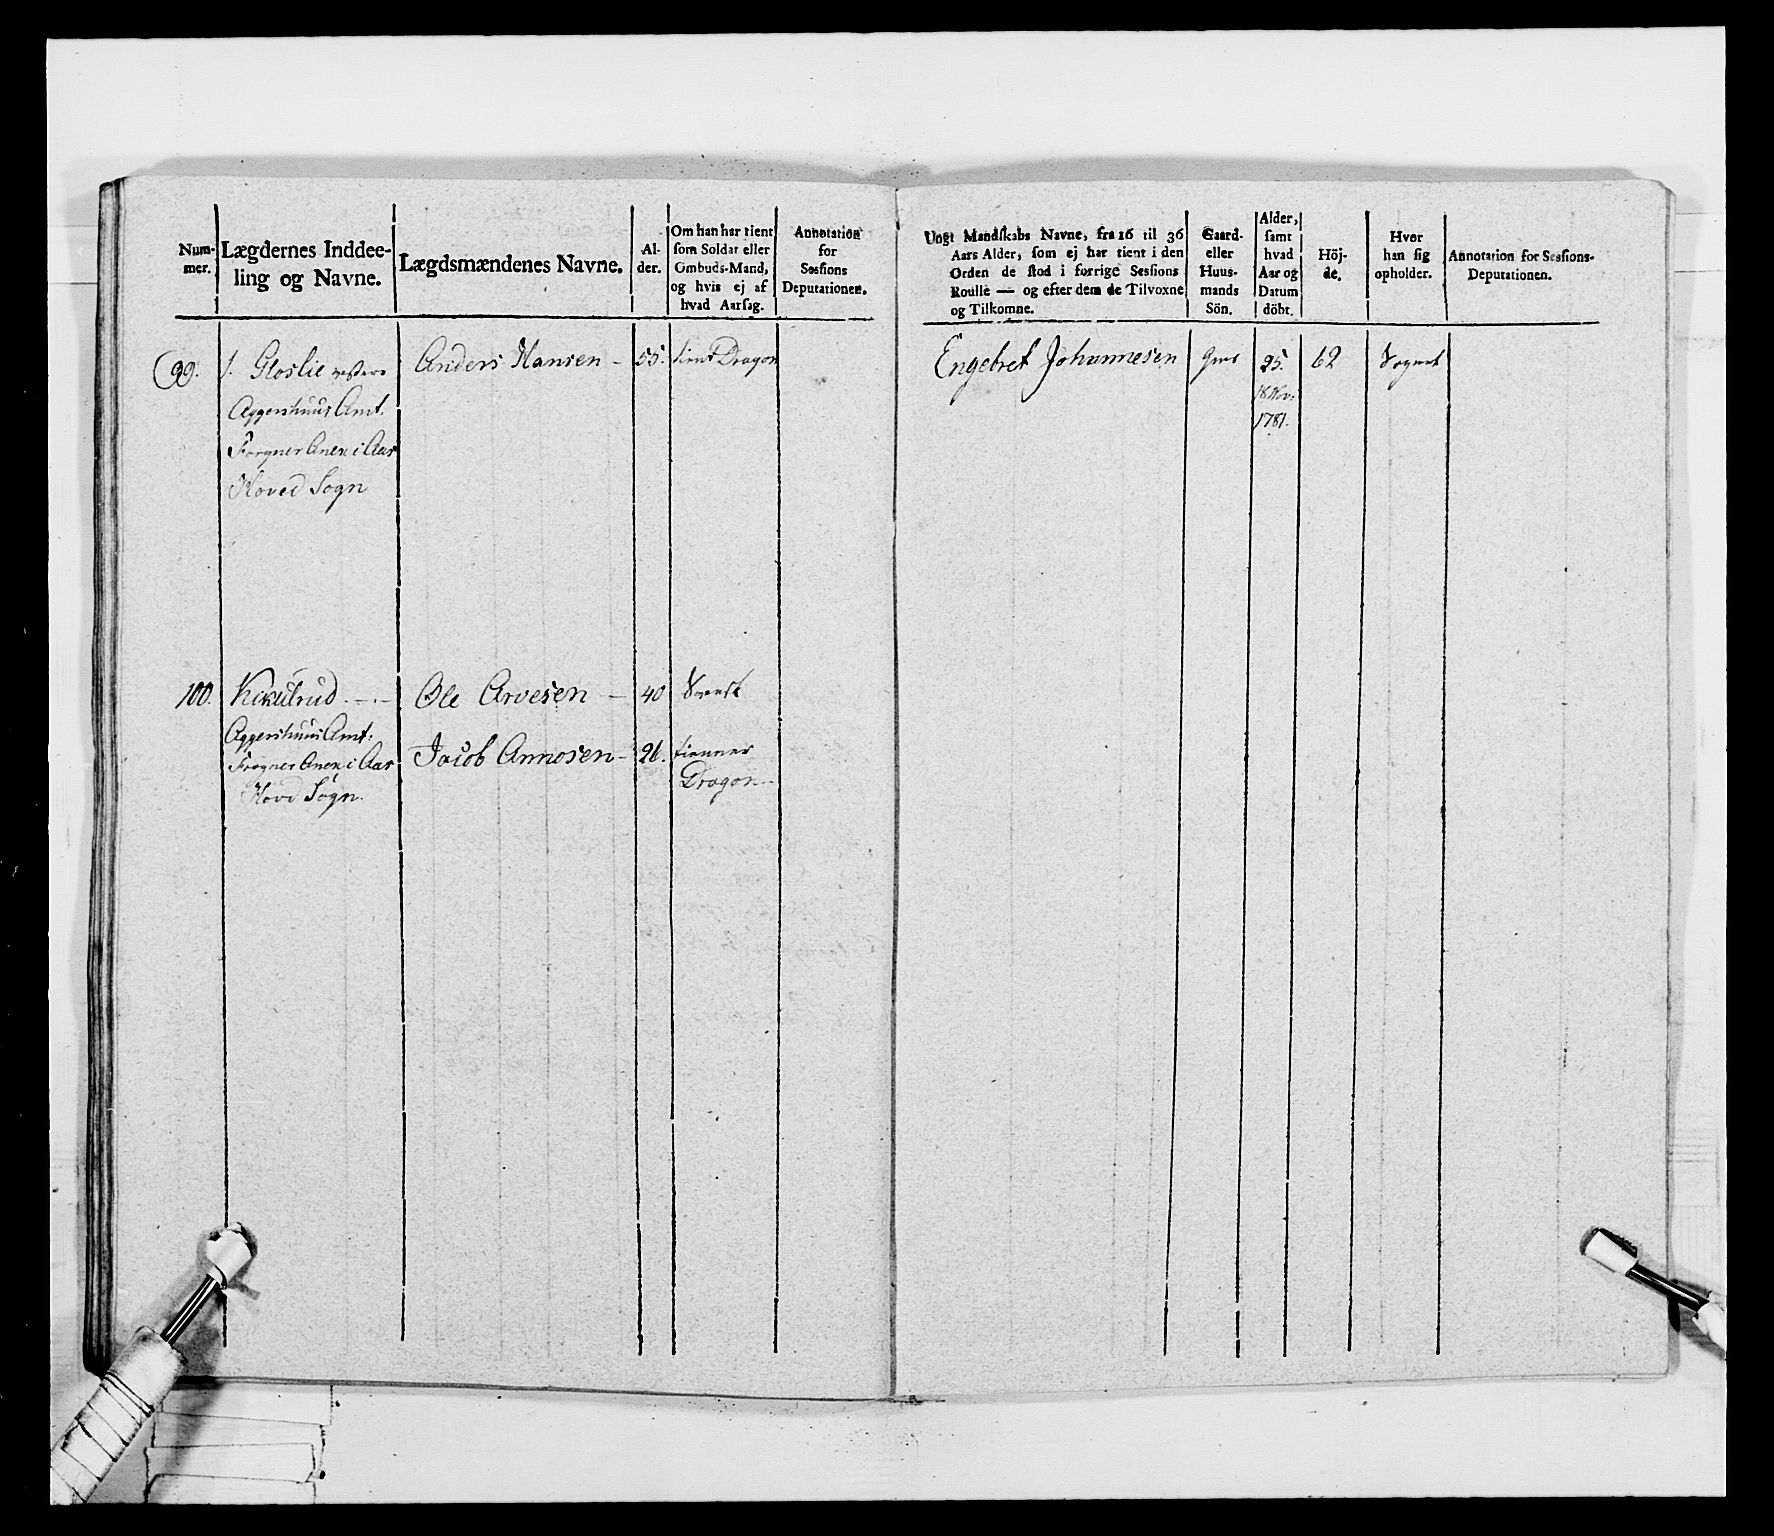 Num-
mer.
Lægdernes Inddee-
ling og Navne.
Lægdsmændenes Navne.
Al-
der.
Om han har tient
som Soldat eller
Ombuds-Mand,
og hvis ej af
hvad Aarsag.
Annotation
for
Sessions
Deputationen.
Ungt Mandskabs Navne, fra 16 til 36
Aars Alder, som ej har tient i den
Orden de stod i forrige Sessions
Roulle — og efter dem de Tilvoxne
og Tilkomne.
Gaard-
eller
Huus-
mands
Sön.
Alder,
samt
hvad
Aar og
Datum
döbt.
Höj-
de.
Hvor
han sig
opholder.
Annotation for Sessions-
Deputationen.
99. 1. Gloslie
Anders Hansen - 55. tient Dragon
Aggershuus Amt.
Frogner Anex i Aas
Hoved Sogn
Engebret Johannesen 25. 62
18 Nov:
1781.
100.
Ole Arvesen - 40
Aggershuus Amt:
Frogner Anex i Aas
Hovd Sogn.
Jacob Amosen - 26. tienner
Dragon